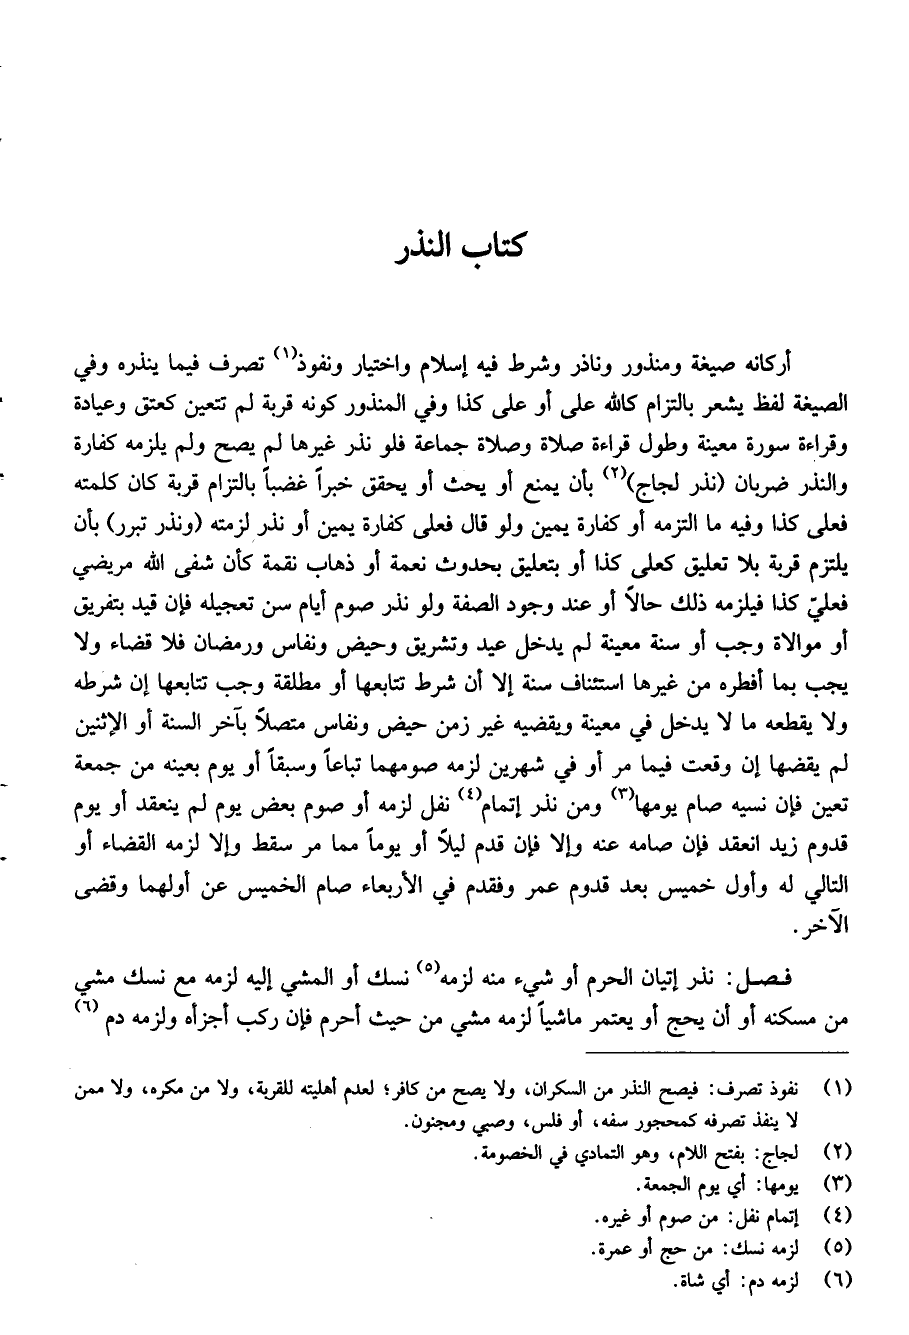 كتاب النذر
أركانه صيغة ومنذور وناذر وشرط فيه إسلام واختيار ونفوذ(١) تصرف فيما ينذره وفي
الصيغة لفظ يشعر بالتزام كالله على أو على كذا وفي المنذور كونه قربة لم تتعين كعتق وعيادة
وقراءة سورة معينة وطول قراءة صلاة وصلاة جماعة فلو نذر غيرها لم يصح ولم يلزمه كفارة
والنذر ضربان (نذر لجاج)(٢) بأن يمنع أو يحث أو يحقق خبراً غضباً بالتزام قربة كان كلمته
فعلى كذا وفيه ما التزمه أو كفارة يمين ولو قال فعلى كفارة يمين أو نذر لزمته (ونذر تبرر) بأن
يلتزم قربة بلا تعليق كعلى كذا أو بتعليق بحدوث نعمة أو ذهاب نقمة كأن شفى الله مريضي
فعليّ كذا فيلزمه ذلك حالاً أو عند وجود الصفة ولو نذر صوم أيام سن تعجيله فإن قيد بتفريق
أو موالاة وجب أو سنة معينة لم يدخل عيد وتشريق وحيض ونفاس ورمضان فلا قضاء ولا
يجب بما أفطره من غيرها استئناف سنة إلا أن شرط تتابعها أو مطلقة وجب تتابعها إن شرطه
ولا يقطعه ما لا يدخل في معينة ويقضيه غير زمن حيض ونفاس متصلاً بآخر السنة أو الإثنين
لم يقضها إن وقعت فيما مر أو في شهرين لزمه صومهما تباعاً وسبقاً أو يوم بعينه من جمعة
تعين فإن نسيه صام يومها(٣) ومن نذر إتمام(٤) نفل لزمه أو صوم بعض يوم لم ينعقد أو يوم
قدوم زيد انعقد فإن صامه عنه وإلا فإن قدم ليلاً أو يوماً مما مر سقط وإلا لزمه القضاء أو
التالي له وأول خميس بعد قدوم عمر وفقدم في الأربعاء صام الخميس عن أولهما وقضى
الآخر.
فـصـل: نذر إتيان الحرم أو شيء منه لزمه(٥) نسك أو المشي إليه لزمه مع نسك مشي
من مسكنه أو أن يحج أو يعتمر ماشياً لزمه مشي من حيث أحرم فإن ركب أجزأه ولزمه دم (٦)
(١) نفوذ تصرف: فيصح النذر من السكران، ولا يصح من كافر؛ لعدم أهليته للقربة، ولا من مكره، ولا ممن
لا ينفذ تصرفه كمحجور سفه، أو فلس، وصبي ومجنون.
(٢) لجاج: بفتح اللام، وهو التمادي في الخصومة.
(٣) يومها: أي يوم الجمعة.
(٤) إتمام نفل: من صوم أو غيره.
(٥) لزمه نسك: من حج أو عمرة.
(٦) لزمه دم: أي شاة.